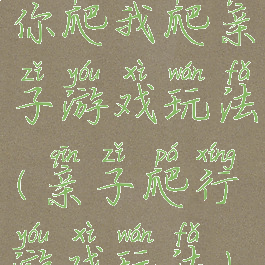 你爬我爬亲
zǐ yóu xì wán fǎ
子游戏玩法
qīn zǐ pá xíng
(亲子爬行
yóu xì wán fǎ
游戏玩法)